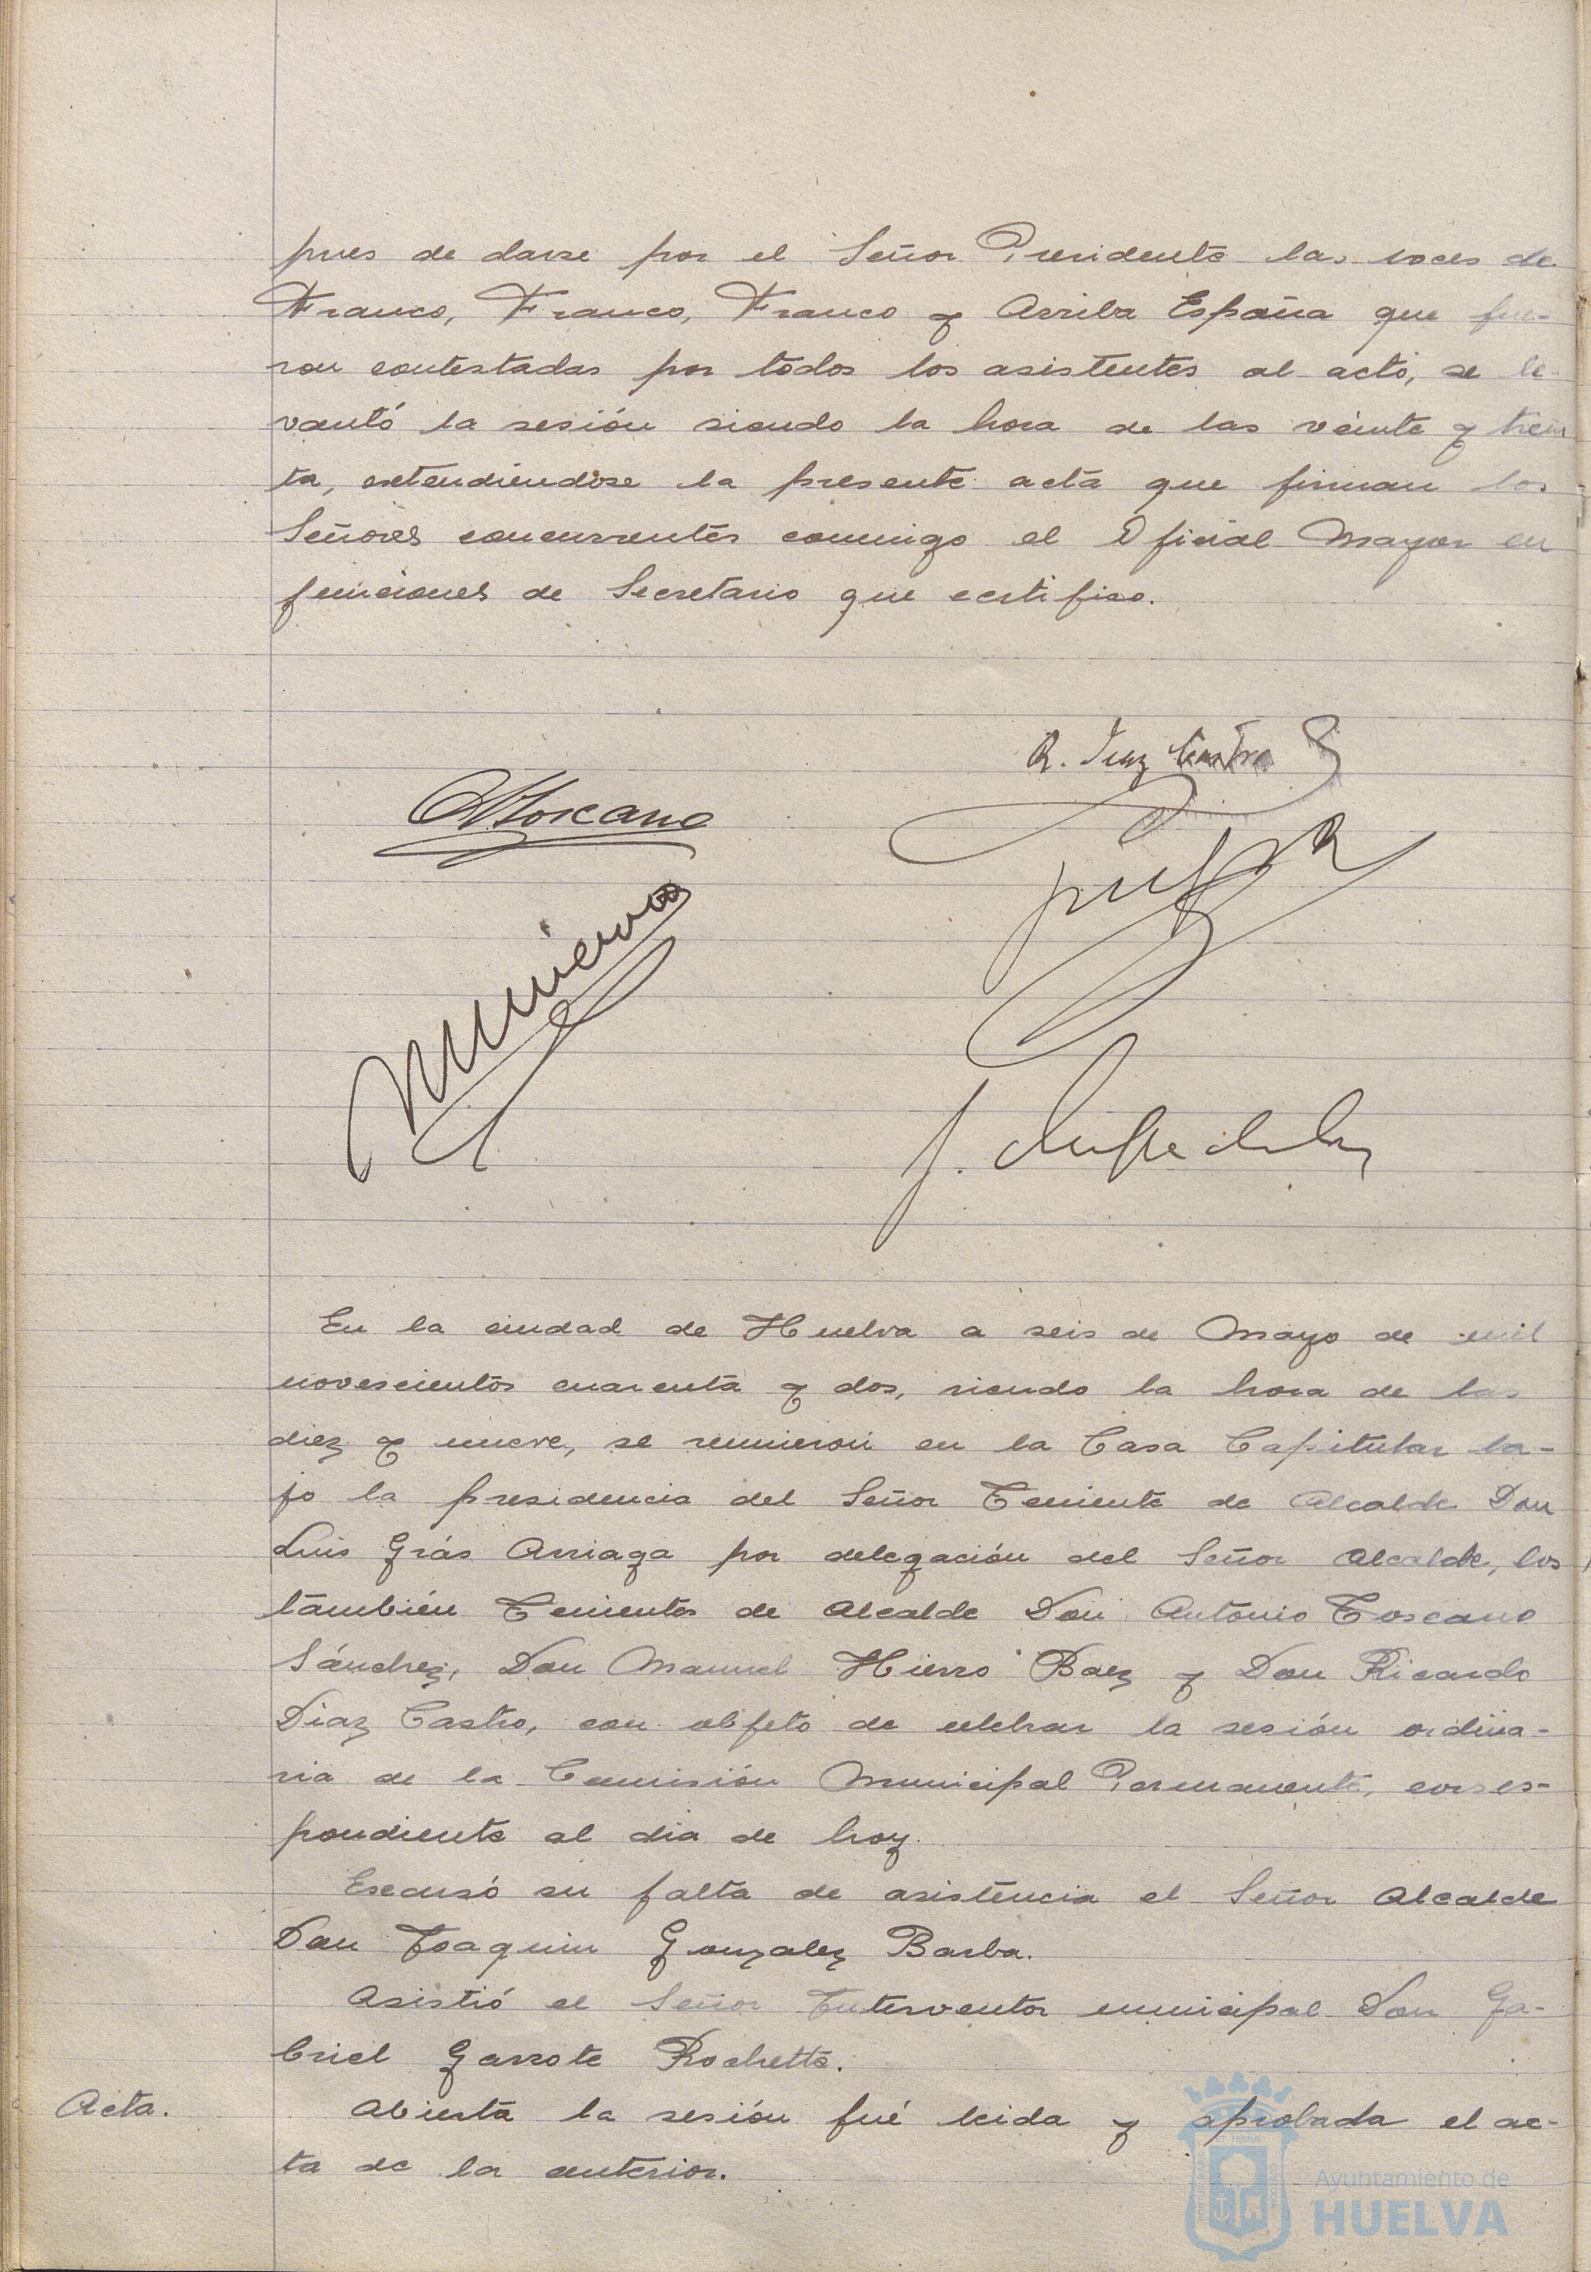 pues de darse por el Señor Presidente las voces de
Franco, Franco, Franco y Arriba España que fue-
ron contestadas por todos los asistentes al acto, se le-
vantó la sesión siendo la hora de las veinte y trein
ta, extendiéndose la presente acta que firman los
Señores concurrentes conmigo el Oficial Mayor en
funciones de Secretario que certifico.
R. Diaz Castro
AToscano
En la ciudad de Huelva a seis de Mayo de mil
novescientos cuarenta y dos, siendo la hora de las
diez y nueve, se reunieron en la Casa Capitular ba-
jo la presidencia del Señor Teniente de Alcalde Don
Luis Grás Arriaga por delegación del Señor Alcalde, los
también Tenientes de Alcalde Don Antonio Toscano
Sánchez, Don Manuel Hierro Baez y Don Ricardo
Diaz Castro, con objeto de celebrar la sesión ordina-
ria de la Comisión Municipal Permanente, corres-
pondiente al dia de hoy.
Escusó su falta de asistencia el Señor Alcalde
Don Joaquin Gonzalez Barba.
Asistió el Señor Interventor municipal Don Ga-
briel Garrote Rochetta.
Acta.
Abierta la sesión fué leida y aprobada el ac-
ta de la anterior.
Ayuntamiento de
HUELVA